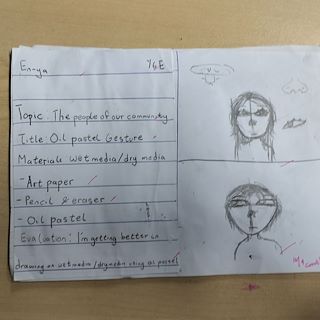 En-ya Y6E
Topic: The people of our community
Title: Oil pastel Gesture
Materials wet media/dry media
- Art paper
- Pencil & eraser
- Oil pastel
Evaluation: I'm getting better in
drawing on wet media/dry media using oil pastel